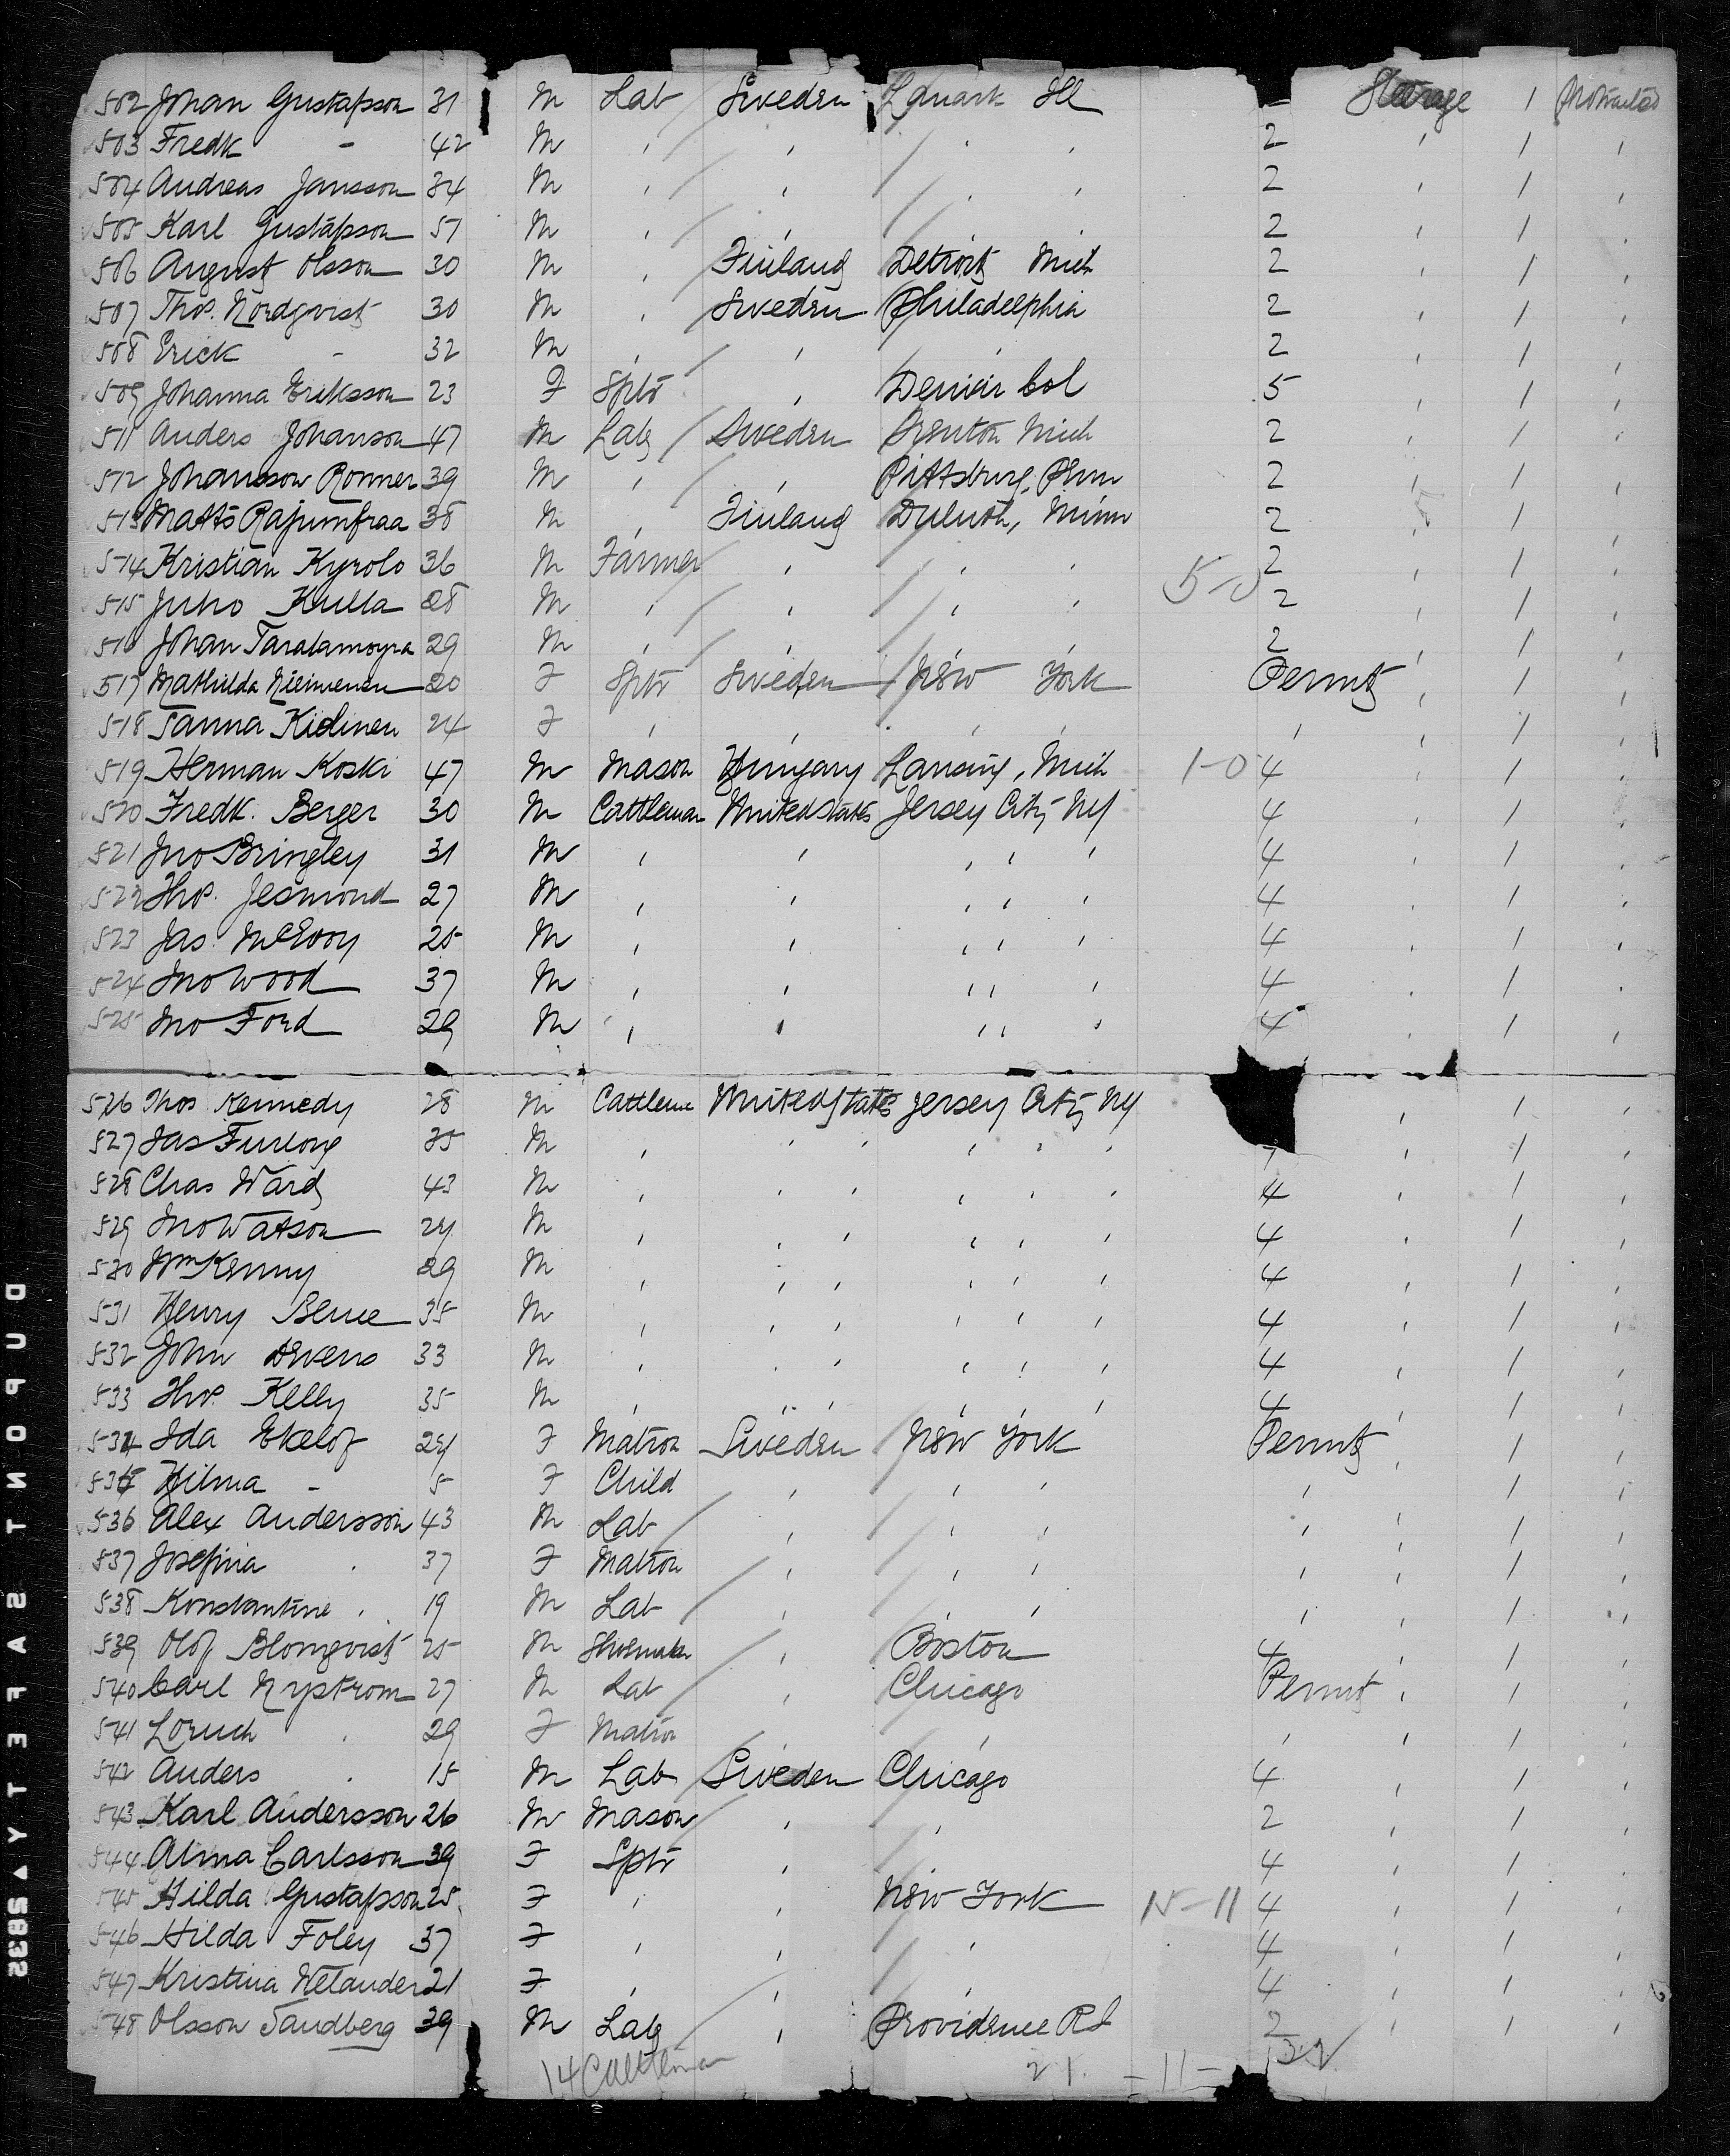 502 Johan Gustafsson 31 M Lab Sweden Lanark Ill Steerage 1 Protracted
503 Fredk - 42 M ' ' ' ' 2 ' 1 '
504 Andreas Jansson 34 M ' ' ' ' 2 ' 1 '
505 Karl Gustafsson 51 M ' ' ' ' 2 ' 1 '
506 August Olsson 30 M ' Finland Detroit Mich 2 ' 1 '
507 Thos. Nordqvist 30 M ' Sweden Philadelphia 2 ' 1 '
508 Erick - 32 M ' ' ' 2 ' 1 '
509 Johanna Eriksson 23 F Sptr ' Denver Col 5 ' 1 '
511 Anders Johanson 47 M Lab Sweden Mich 2 ' 1 '
512 Johansson Ronner 39 M ' ' Pittsburg, Penn 2 ' 1 '
513 Matts 38 M ' Finland Duluth, Minn 2 ' 1 '
514 Kristian Kyrolo 36 M Farmer ' ' ' 2 ' 1 '
515 Juho Kulla 28 M ' ' ' ' 5-0 2 ' 1 '
516 Johan 29 M ' ' ' ' 2 ' 1 '
517 Mathilda Nieminen 20 F Sptr Sweden New York Permt ' 1 '
518 Sanna Kidinen 24 F ' ' ' ' ' ' 1 '
519 Herman Koski 47 M Mason Hungary Lansing, Mich 1-0 4 ' 1 '
520 Fredk. Berger 30 M Cattleman United States Jersey City NJ 4 ' 1 '
521 Jno Bringley 31 M ' ' ' ' ' 4 ' 1 '
522 Thos. Jesmond 27 M ' ' ' ' ' 4 ' 1 '
523 Jas. McEvoy 25 M ' ' ' ' ' 4 ' 1 '
524 Jno Wood 37 M ' ' ' ' ' 4 ' 1 '
525 Jno Ford 29 M ' ' ' ' ' 4 ' 1 '
526 Thos Kennedy 28 M Cattleme United States Jersey City NJ ' 1 '
527 Jas Furlong 35 M ' ' ' ' ' ' ' 1 '
528 Chas Ward 43 M ' ' ' ' ' ' 4 ' 1 '
529 Jno Watson 24 M ' ' ' ' ' ' 4 ' 1 '
530 Wm Kenny 29 M ' ' ' ' ' ' 4 ' 1 '
531 Henry 35 M ' ' ' ' ' ' 4 ' 1 '
532 John 33 M ' ' ' ' ' ' 4 ' 1 '
533 Thos. Kelly 35 M ' ' ' ' ' ' 4 ' 1 '
534 Ida Ekelof 24 F Matron Sweden New York Permt ' 1 '
535 Hilma - 5 F Child ' ' ' ' ' 1 '
536 Alex Andersson 43 M Lab ' ' ' ' ' 1 '
537 Josefina ' 37 F Matron ' ' ' ' ' 1 '
538 Konstantine ' 19 M Lab ' ' ' ' ' 1 '
539 Olof Blomqvist 25 M Shoemaker ' Boston 4 ' 1 '
540 Carl Nystrom 27 M Lab ' Chicago Permt ' 1 '
541 ' 29 F Matron ' ' ' ' 1 '
542 Anders ' 15 M Lab Sweden Chicago 4 ' 1 '
543 Karl Andersson 26 M Mason ' ' 2 ' 1 '
544 Alma Carlsson 39 F Sptr ' 4 ' 1 '
545 Hilda Gustafsson 25 F ' ' New York 15-11 4 ' 1 '
546 Hilda Foley 37 F ' ' ' 4 ' 1 '
547 Kristina Welander 21 F ' ' ' 4 ' 1 '
548 Olsson Sandberg 39 M Lab ' Providence R I 2 ' 1 '
14 Cattleman 21. - 11 - 32
DUPONT SAFETY 2835